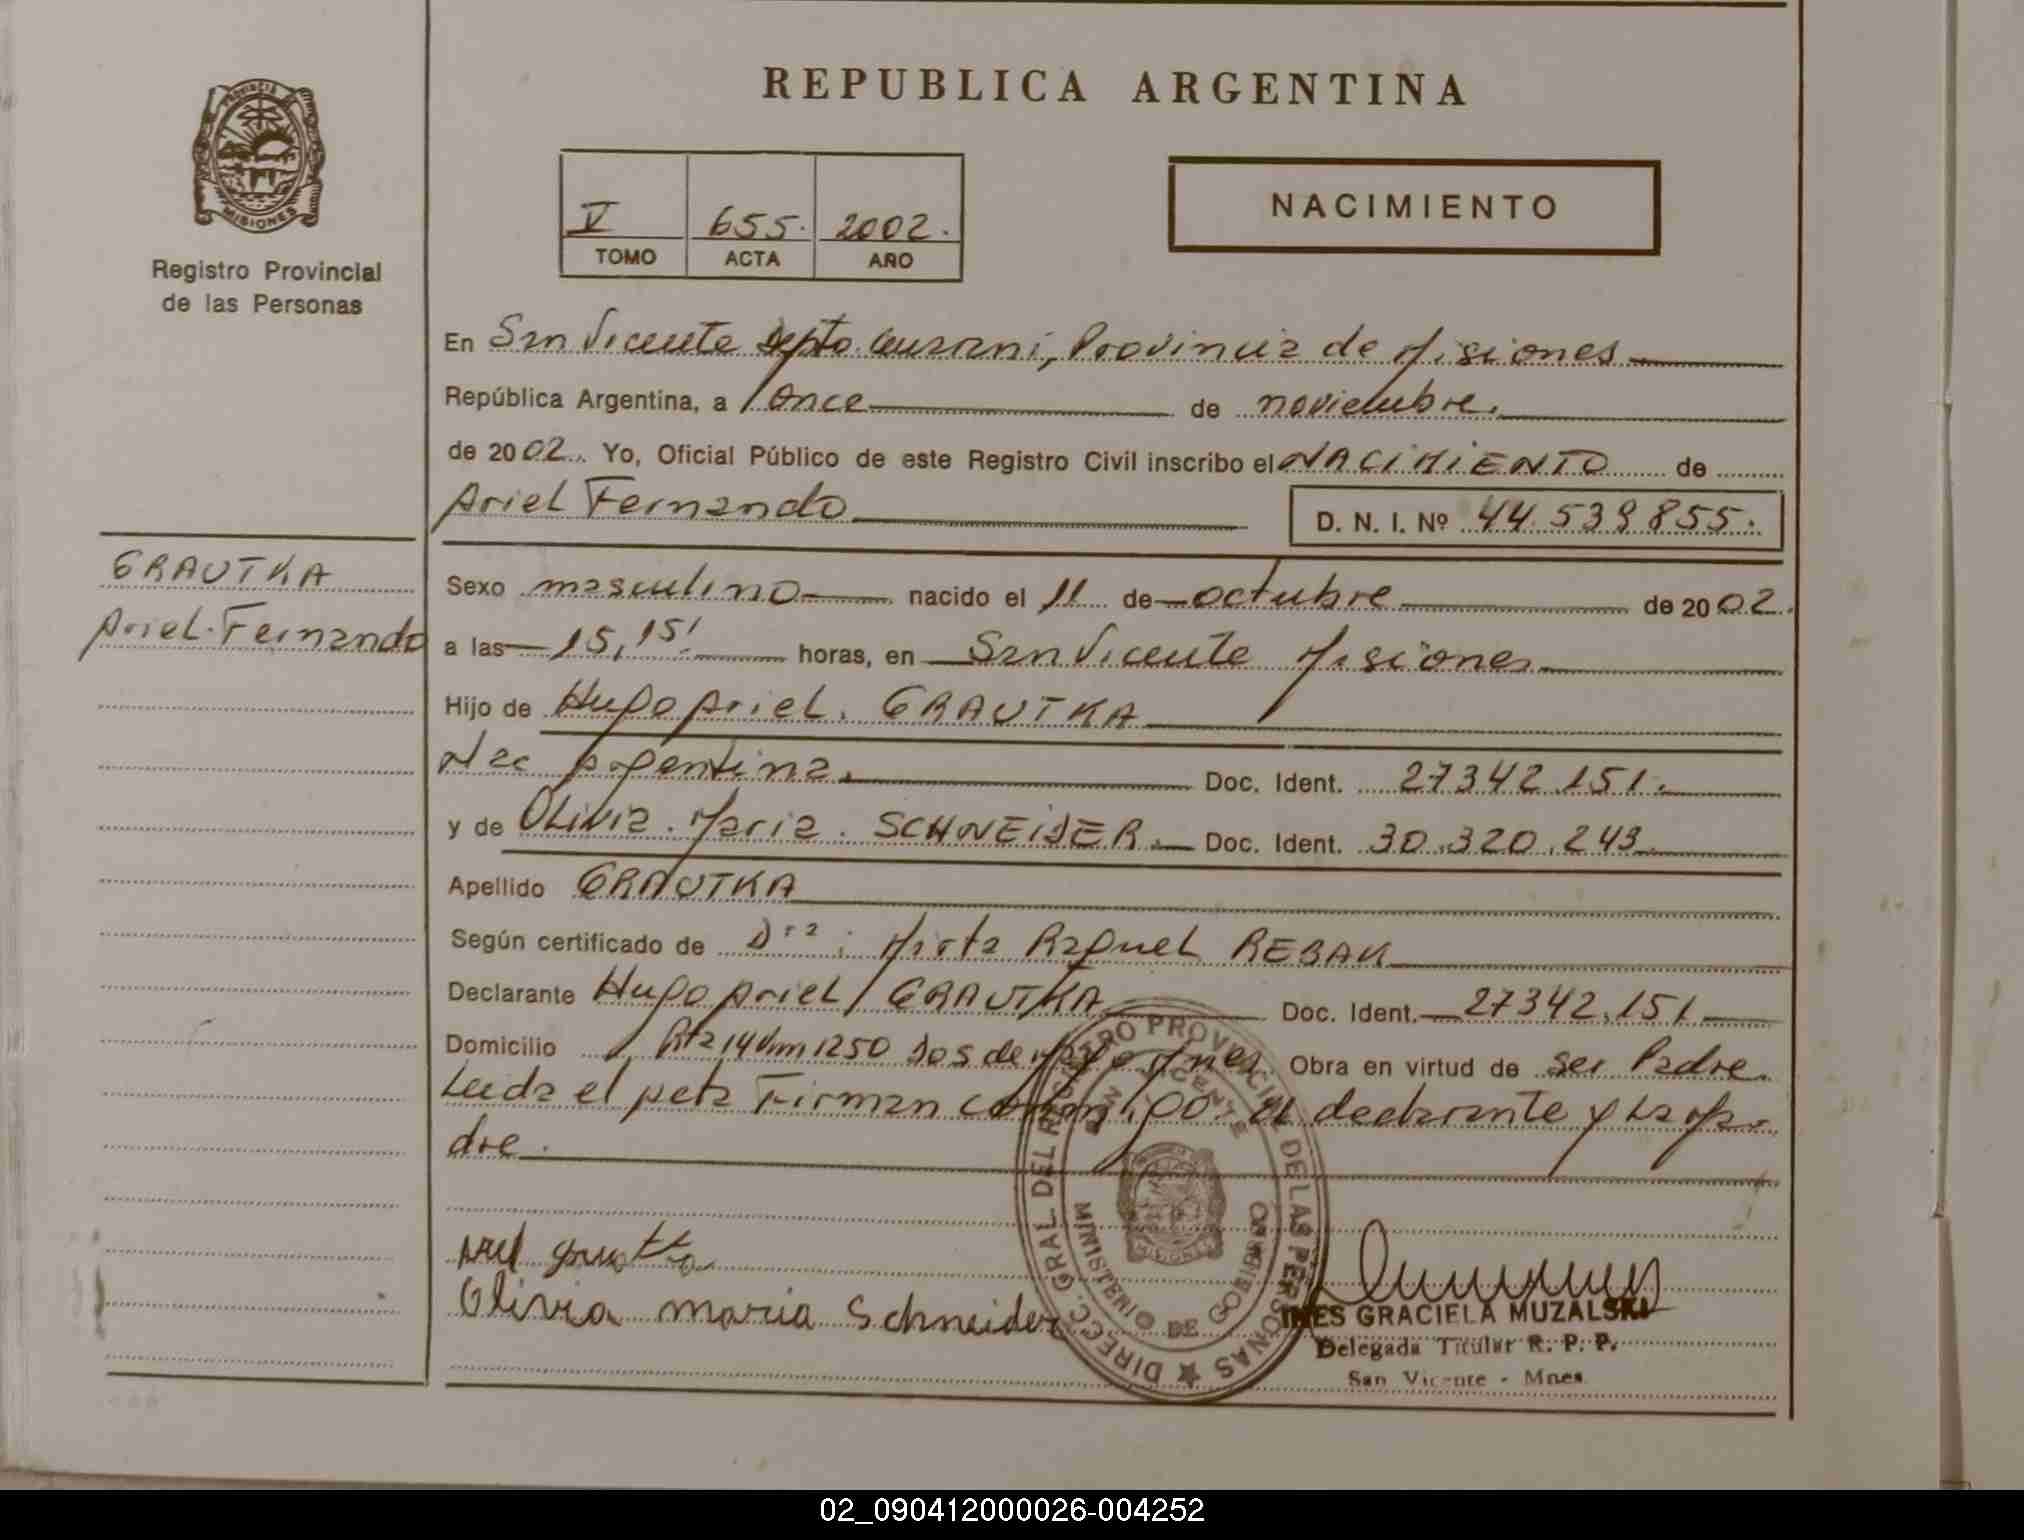 REPUBLICA ARGENTINA
PROVINCIA DE
MISIONES
Registro Provincial
de las Personas
V 655. 2002.
TOMO ACTA AÑO
NACIMIENTO
En San Vicente Depto. Guarani, Provincia de Misiones
República Argentina, a Once de noviembre.
de 2002. Yo, Oficial Público de este Registro Civil inscribo el NACIMIENTO de
Ariel Fernando D. N. I. Nº 44.539.855.
GRAUTKA
Ariel Fernando
Sexo masculino nacido el 11 de octubre de 2002.
a las 15,15' horas, en San Vicente Misiones
Hijo de Hugo Ariel. GRAUTKA
Nac Argentina. Doc. Ident. 27342.151.
y de Olivia. Maria. SCHNEIDER. Doc. Ident. 30.320.243.
Apellido GRAUTKA
Según certificado de Dra: Mirta Raquel REBAK
Declarante Hugo Ariel GRAUTKA Doc. Ident. 27342.151
Domicilio Rta 14 Km 1250 Dos de Mayo Mnes. Obra en virtud de ser Padre.
Leida el Acta Firman conmigo el declarante y la Ma-
dre.
Olivia maria Schneider
DIRECC. GRAL. DEL REGISTRO PROVINCIAL DE LAS PERSONAS
SAN VICENTE
MINISTERIO DE GOBIERNO
MISIONES
INES GRACIELA MUZALSKI
Delegada Titular R. P. P.
San Vicente - Mnes
02_090412000026-004252